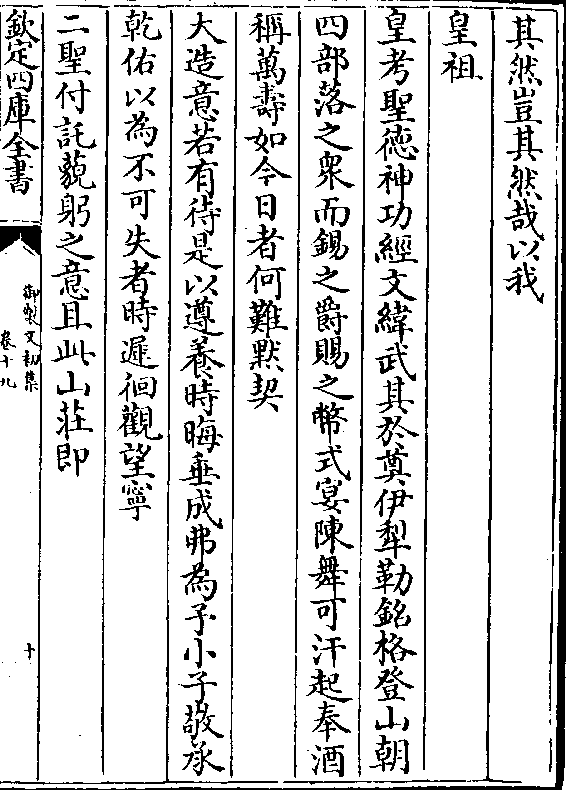 其然豈其然哉以我
皇祖
皇考聖德神功經文緯武其於奠伊犁勒銘格登山朝
四部落之衆而錫之爵賜之幣式宴陳舞可汗起奉酒
稱萬壽如今日者何難黙契
大造意若有待是以遵養時晦垂成弗為予小子敬承
乾佑以為不可失者時遲徊觀望寧
二聖付託藐躬之意且此山荘即
欽定四庫全書
御製文初集
卷十九
十